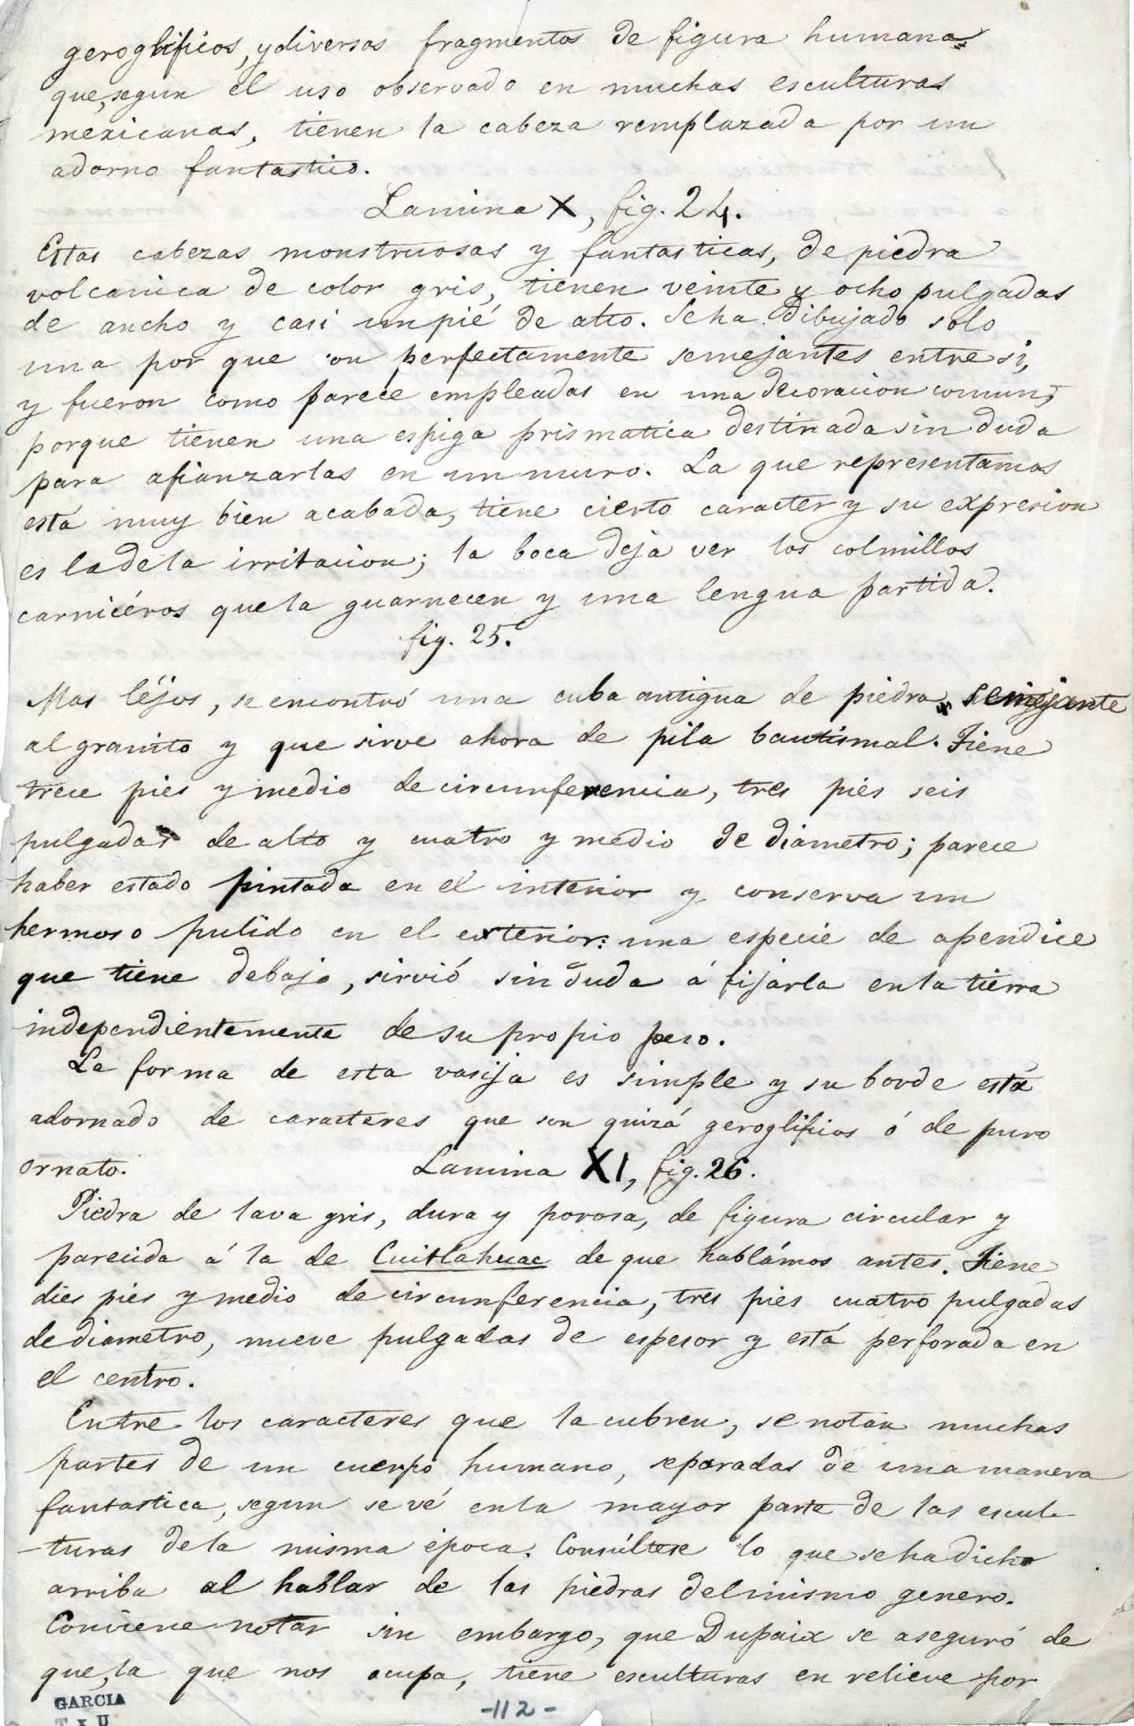 geroglificos, y diversos fragmentos de figura humana
que, segun el uso observado en muchas esculturas
mexicanas, tienen la cabeza remplazada por un
adorno fantastico.
Lamina X, fig. 24.
Estas cabezas monstruosas y fantasticas, de piedra
volcanica de color gris, tienen veinte y ocho pulgadas
de ancho y casi un pié de alto. Se ha dibujado solo
una por que son perfectamente semejantes entre si,
y fueron como parece empleadas en una decoracion comun;
porque tienen una espiga prismatica destinada sin duda
para afianzarlas en un muro. La que representamos
está muy bien acabada, tiene cierto caracter y su expresion
es la de la irritacion; la boca deja ver los colmillos
carnicéros que la guarnecen y una lengua partida.
fig. 25.
Mas léjos, se encontró una cuba antigua de piedra semejante
al granito y que sirve ahora de pila bautismal. Tiene
trece pies y medio de circunferencia, tres pies seis
pulgadas de alto y cuatro y medio de diametro; parece
haber estado pintada en el interior y conserva un
hermoso pulido en el exterior: una especie de apendice
que tiene debajo, sirvió sin duda á fijarla en la tierra
independientemente de su propio peso.
La forma de esta vasija es simple y su borde está
adornado de caracteres que son quizá geroglificos ó de puro
ornato.
Lamina XI, fig. 26.
Piedra de lava gris, dura y porosa, de figura circular y
parecida á la de Cuitlahuac de que hablámos antes. Tiene
dies pies y medio de circunferencia, tres pies cuatro pulgadas
de diametro, nueve pulgadas de espesor y está perforada en
el centro.
Entre los caracteres que la cubren, se notan muchas
partes de un cuerpo humano, separadas de una manera
fantastica, segun se vé en la mayor parte de las escul-
-turas de la misma época. Consúltese lo que se ha dicho
arriba al hablar de las piedras del mismo genero.
Conviene notar sin embargo, que Dupaix se aseguró de
que, la que nos ocupa, tiene esculturas en relieve por
GARCIA
-112-